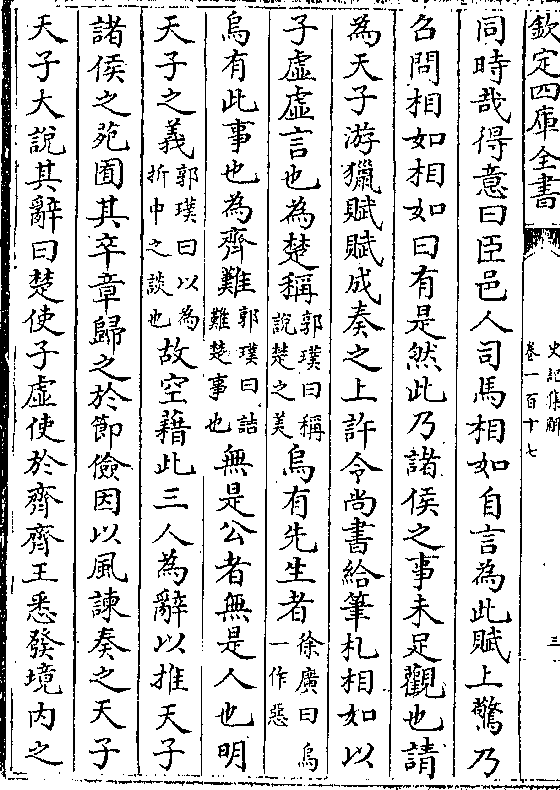 欽定四庫全書
史記集解
卷一百十七
三
同時哉得意曰臣邑人司馬相如自言為此賦上驚乃
召問相如相如曰有是然此乃諸侯之事未足觀也請
為天子游獵賦賦成奏之上許令尚書給筆札相如以
子虛虛言也為楚稱郭璞曰稱說楚之美烏有先生者徐廣曰烏一作惡
烏有此事也為齊難郭璞曰詰難楚事也無是公者無是人也明
天子之義郭璞曰以為折中之談也故空藉此三人為辭以推天子
諸侯之苑囿其卒章歸之於節儉因以風諫奏之天子
天子大說其辭曰楚使子虛使於齊齊王悉發境內之